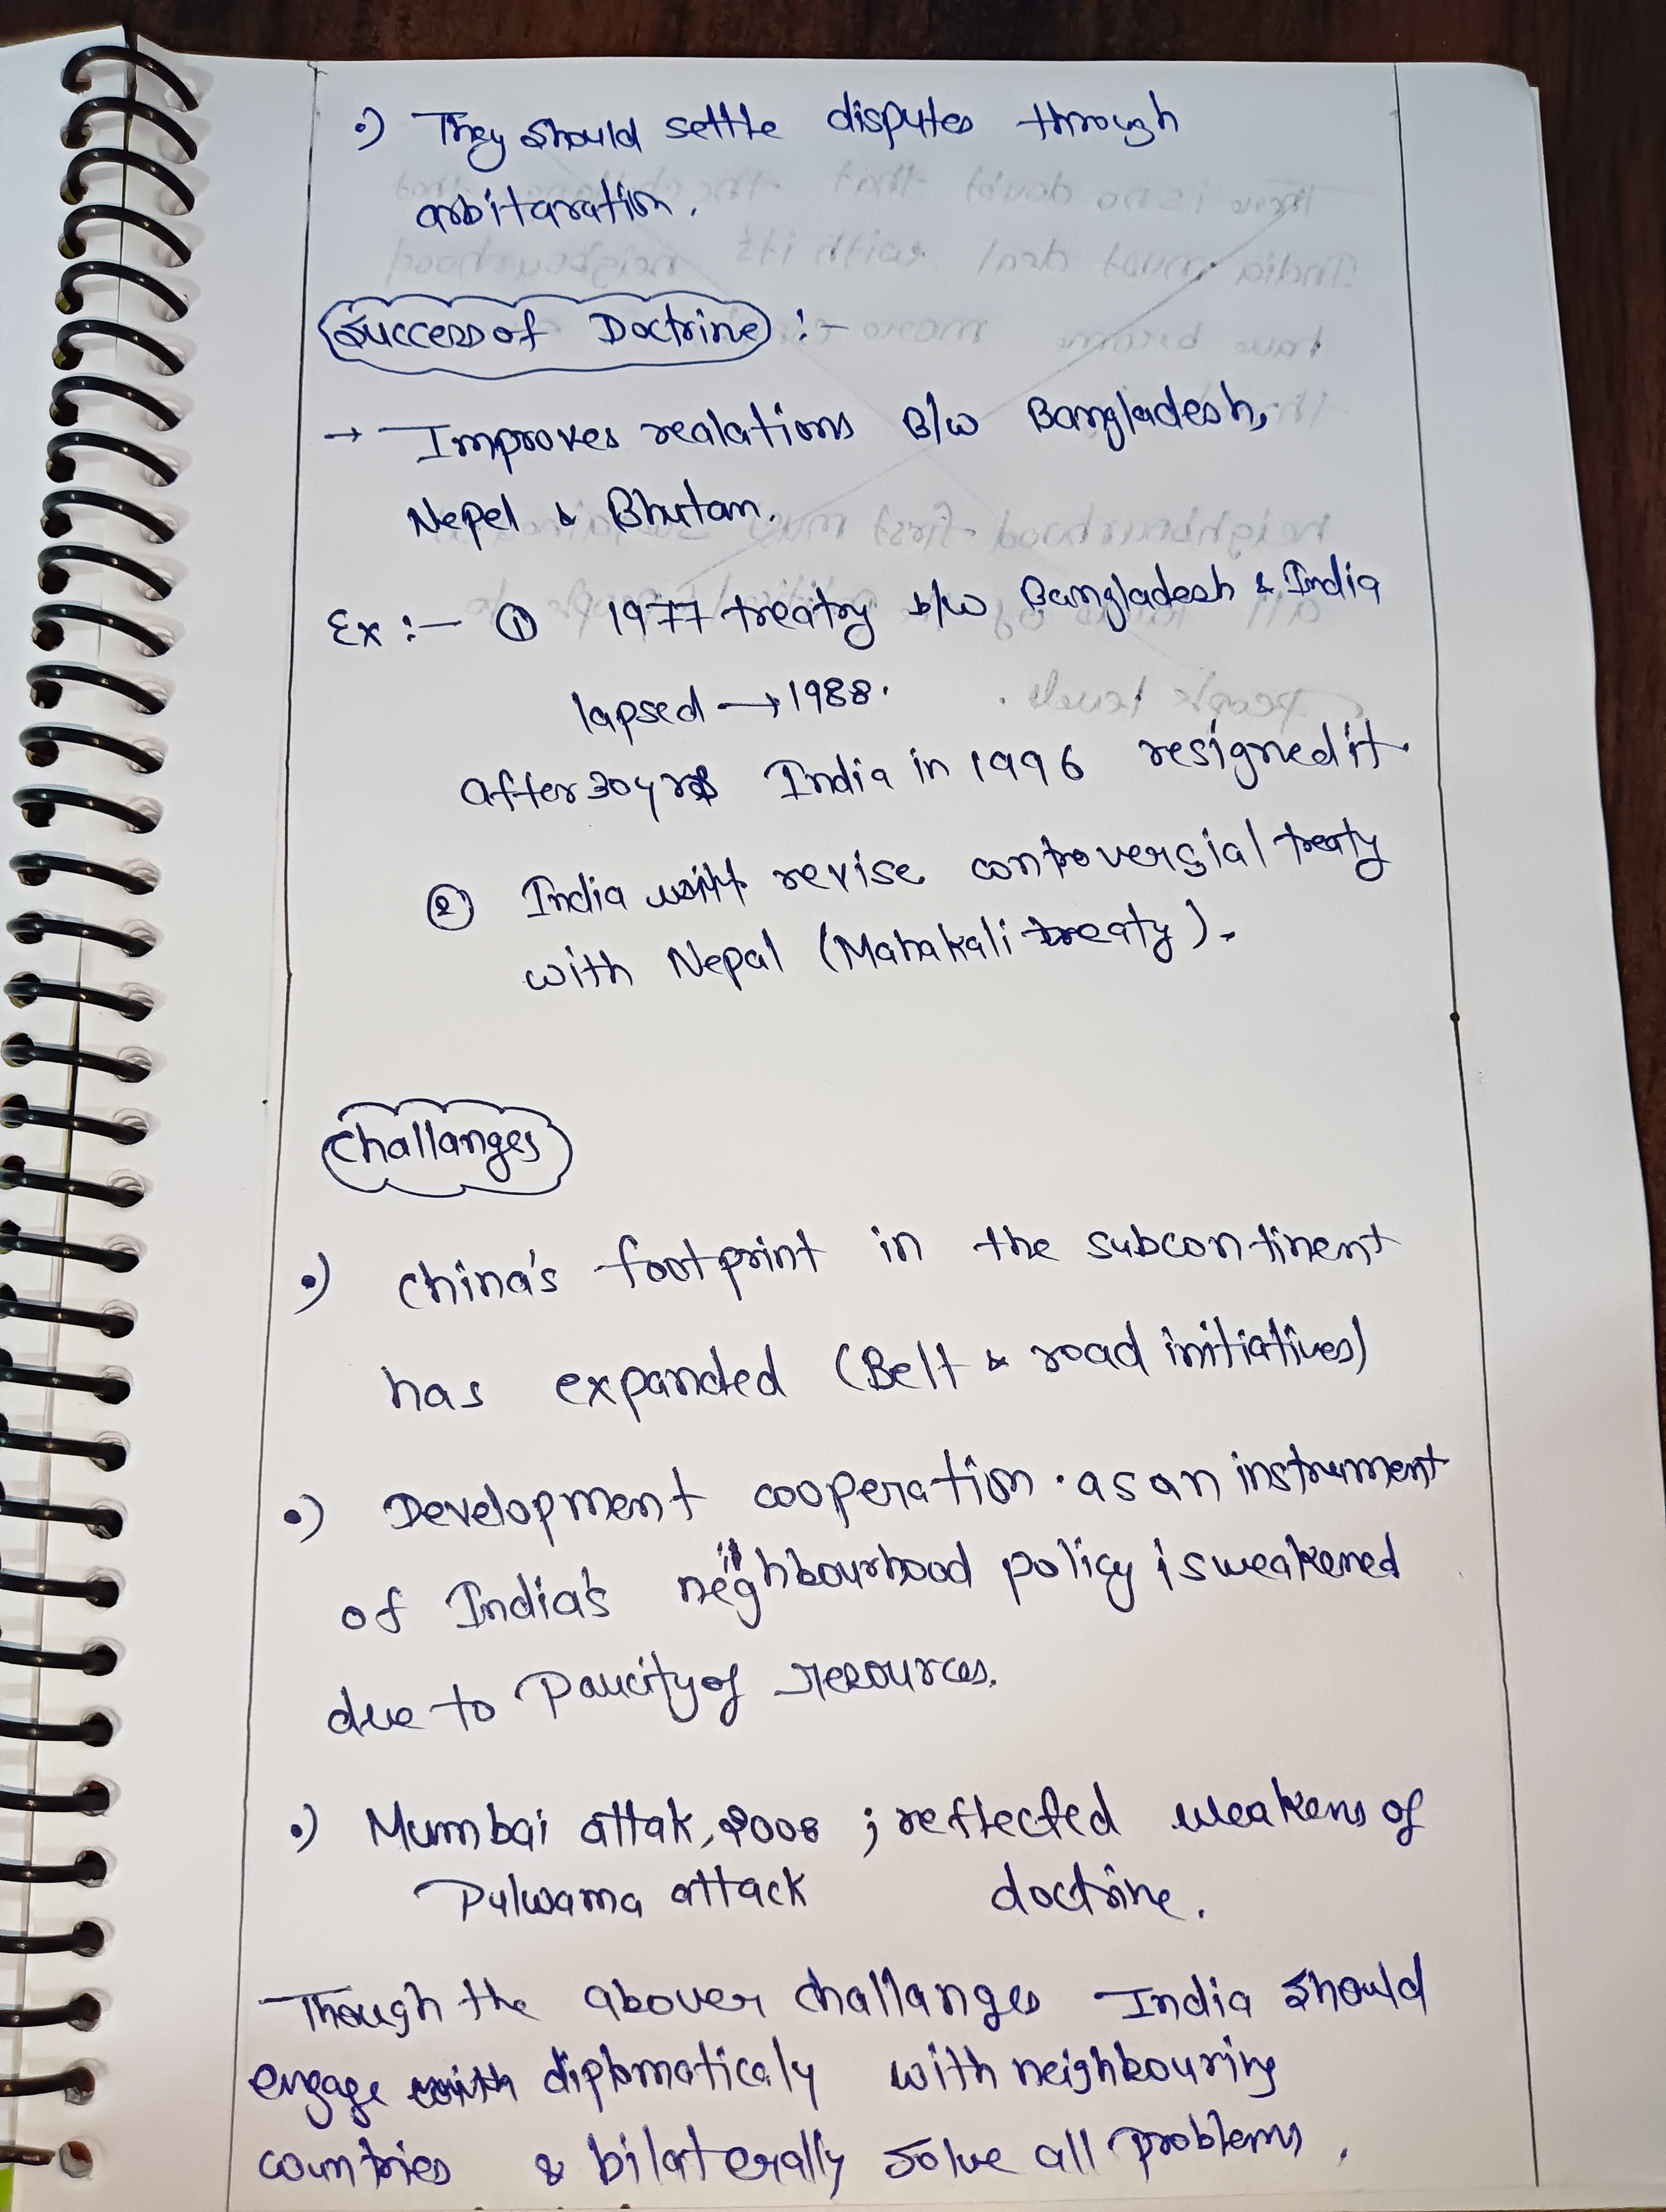 •) They should settle disputes through
arbitaration.
Success of Doctrine :-
→ Improves realations B/w Bangladesh,
Nepel & Bhutan.
Ex :- ① 1977 treatry b/w Bangladesh & India
lapsed → 1988.
after 30 yrs India in 1996 resigned it.
② India revise controversial treaty
with Nepal (Mahakali treaty).
Challanges
•) China's footprint in the subcontinent
has expanded (Belt & road initiatives)
•) Development cooperation as an instrument
of India's neighbourhood policy is weakened
due to Paucity of resources.
•) Mumbai attak, 2008 ; reflected weakens of
Pulwama attack doctrine.
Though the abover challanges India should
engage diplomaticaly with neighbouring
countries & bilaterally solve all problems.